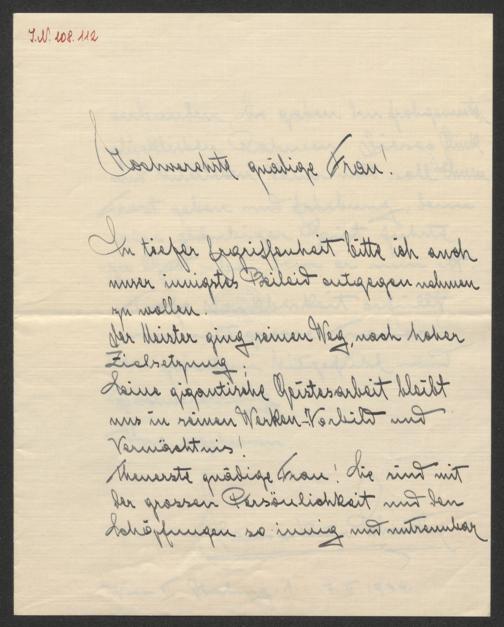 I.N. 208.112
Hochverehrte gnädige Frau!
In tiefer Ergriffenheit bitte ich auch
unser innigstes Beileid entgegen nehmen
zu wollen.
Der Meister ging seinen Weg, nach hoher
Zielsetzung.
Seine gigantische Geistesarbeit bleibt
uns in seinen Werken-Vorbild und
Vermächtnis!
Theuerste gnädige Frau! Sie sind mit
der grossen Persönlichkeit und den
Schöpfungen so innig und untrennbar